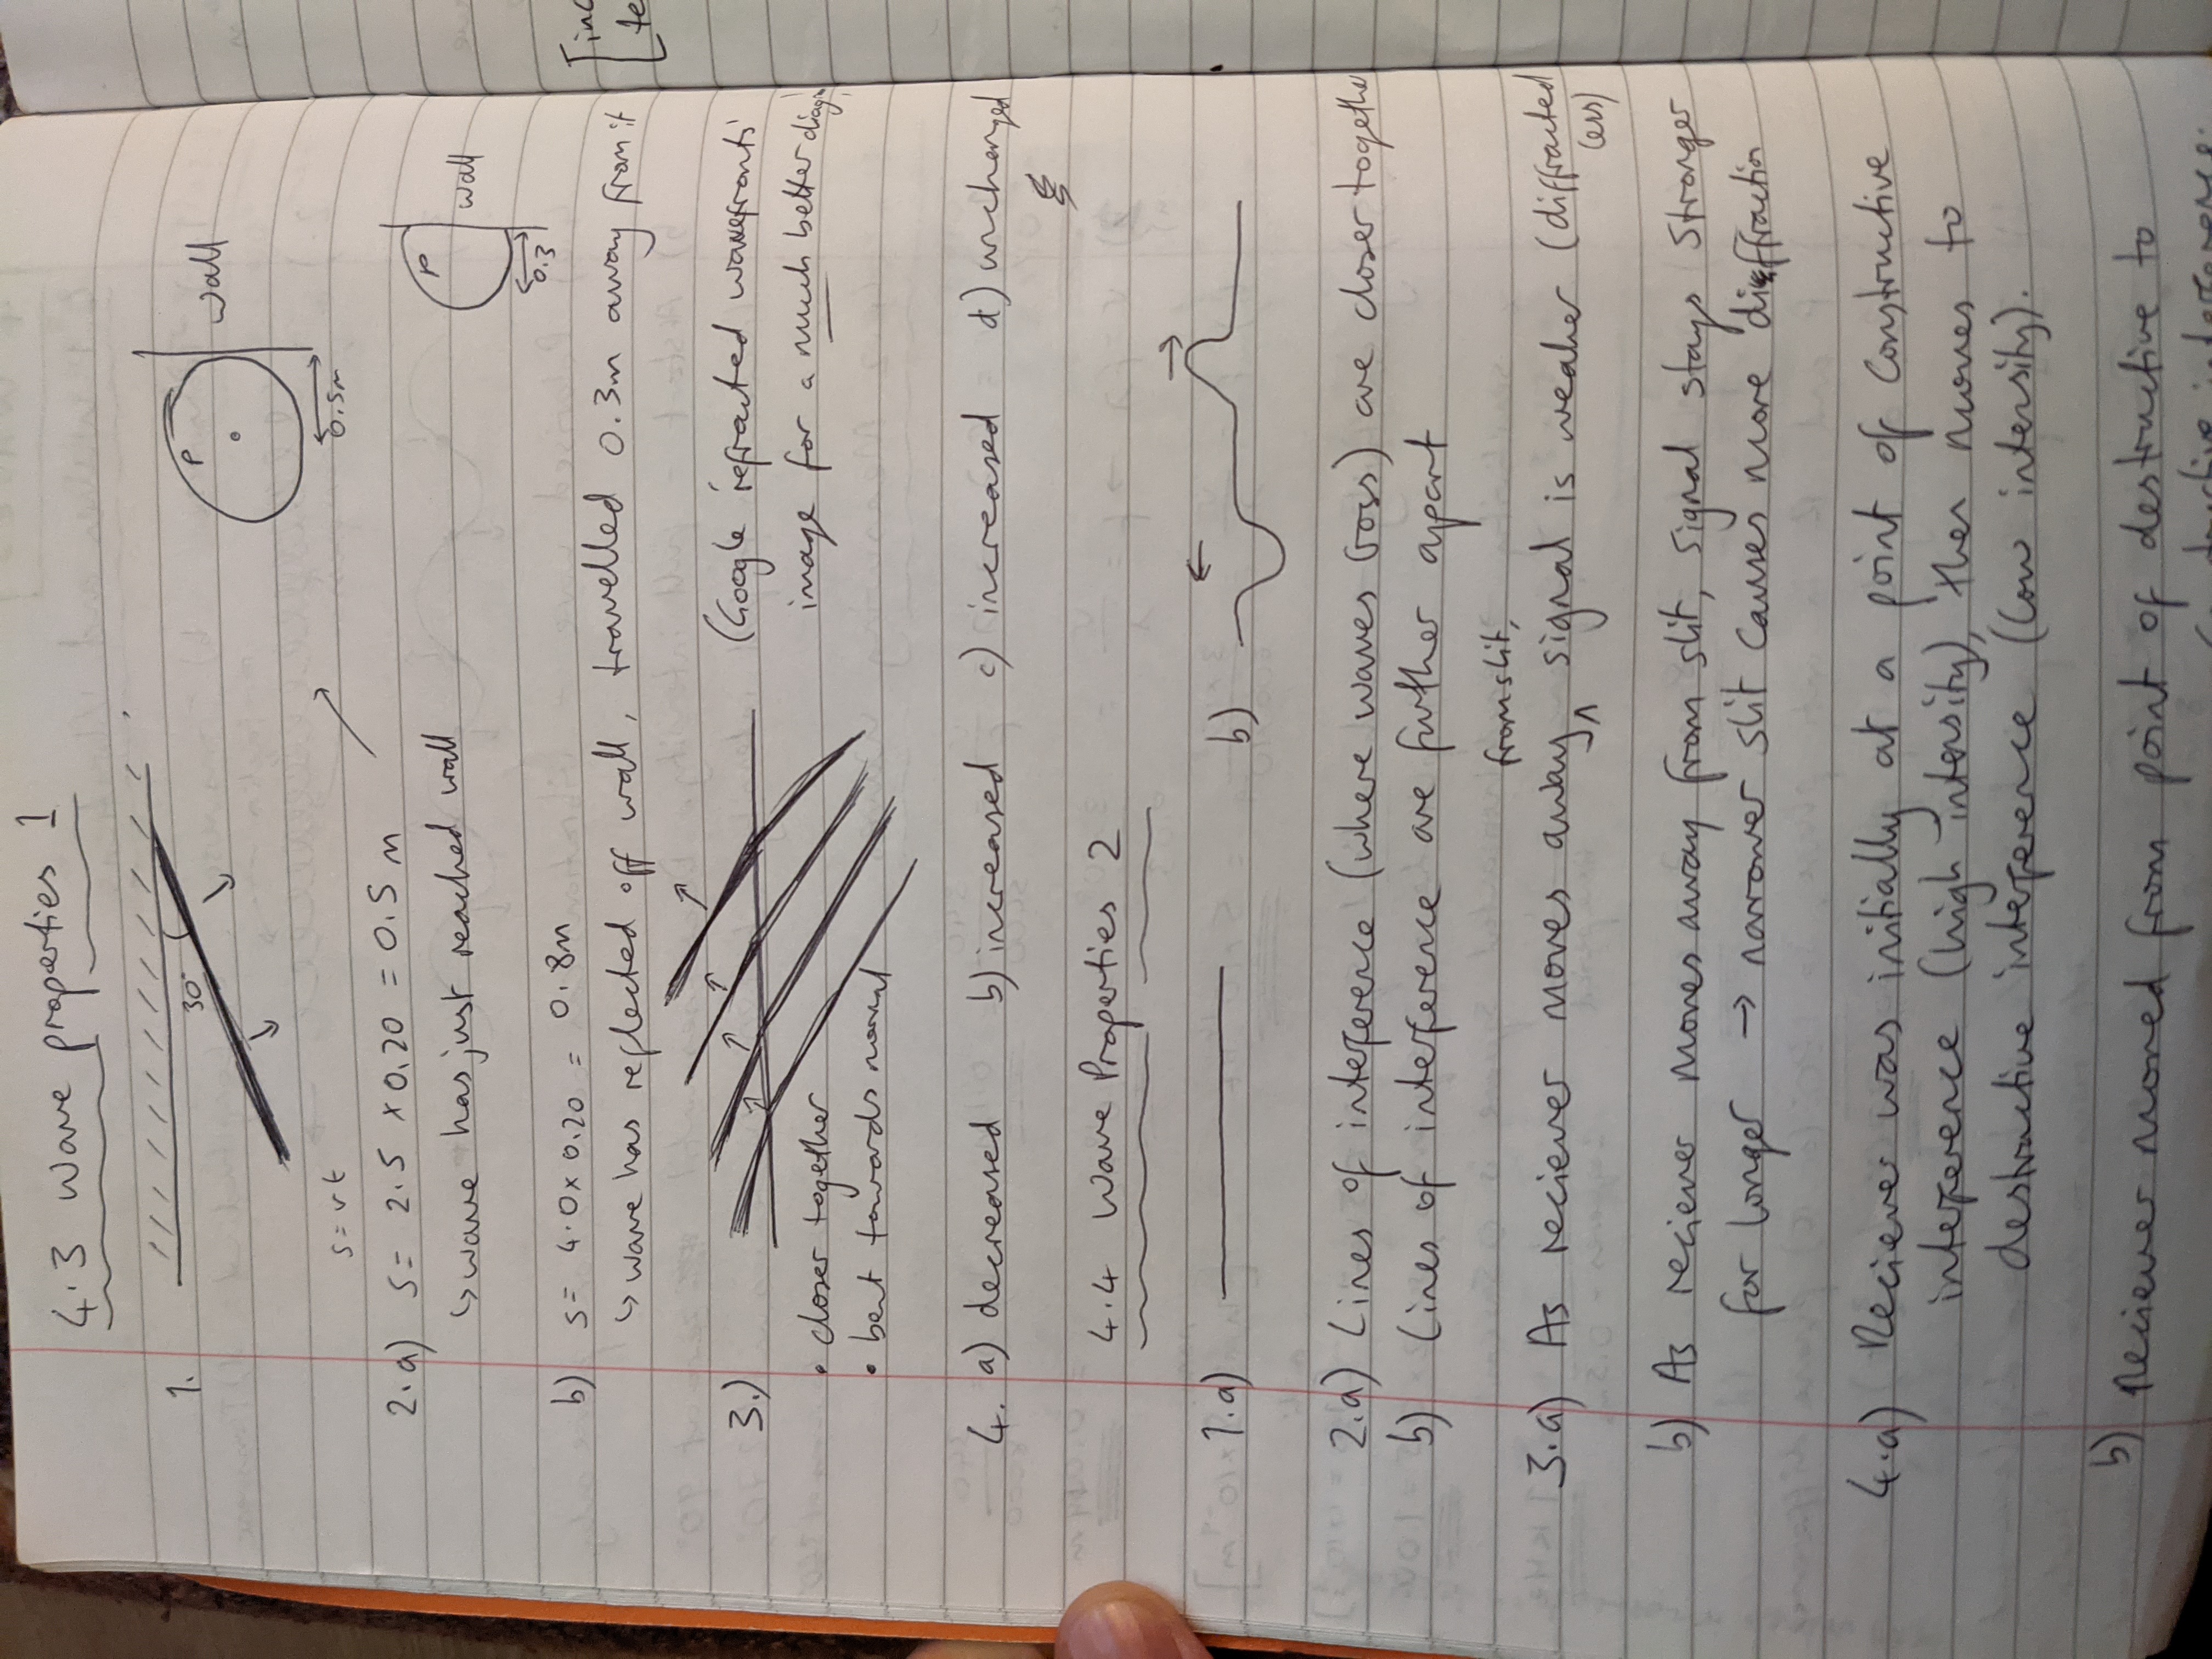 4.3 Wave properties 1
1.
30°
P
wall
0.5m
s = vt
2.a) s = 2.5 x 0.20 = 0.5 m
↳ wave has just reached wall
P
wall
0.3
b) s = 4.0 x 0.20 = 0.8m
↳ wave has reflected off wall, travelled 0.3m away from it
3.)
(Google 'refracted wavefronts'
image for a much better
• closer together
• bent towards normal
4. a) decreased b) increased c) increased d) unchanged
4.4 Wave Properties 2
1.a)
b)
2.a) Lines of interference (where waves cross) are closer together
b) Lines of interference are further apart
3.a) As reciever moves away from slit, signal is weaker (diffracted
less)
b) As reciever moves away from slit, signal stays stronger
for longer → narrower slit causes more diffraction
4.a) Reciever was initially at a point of constructive
interference (high intensity), then moves to
destructive interference (low intensity).
b) Reciever moved from point of destructive to
interference.
[inc
te